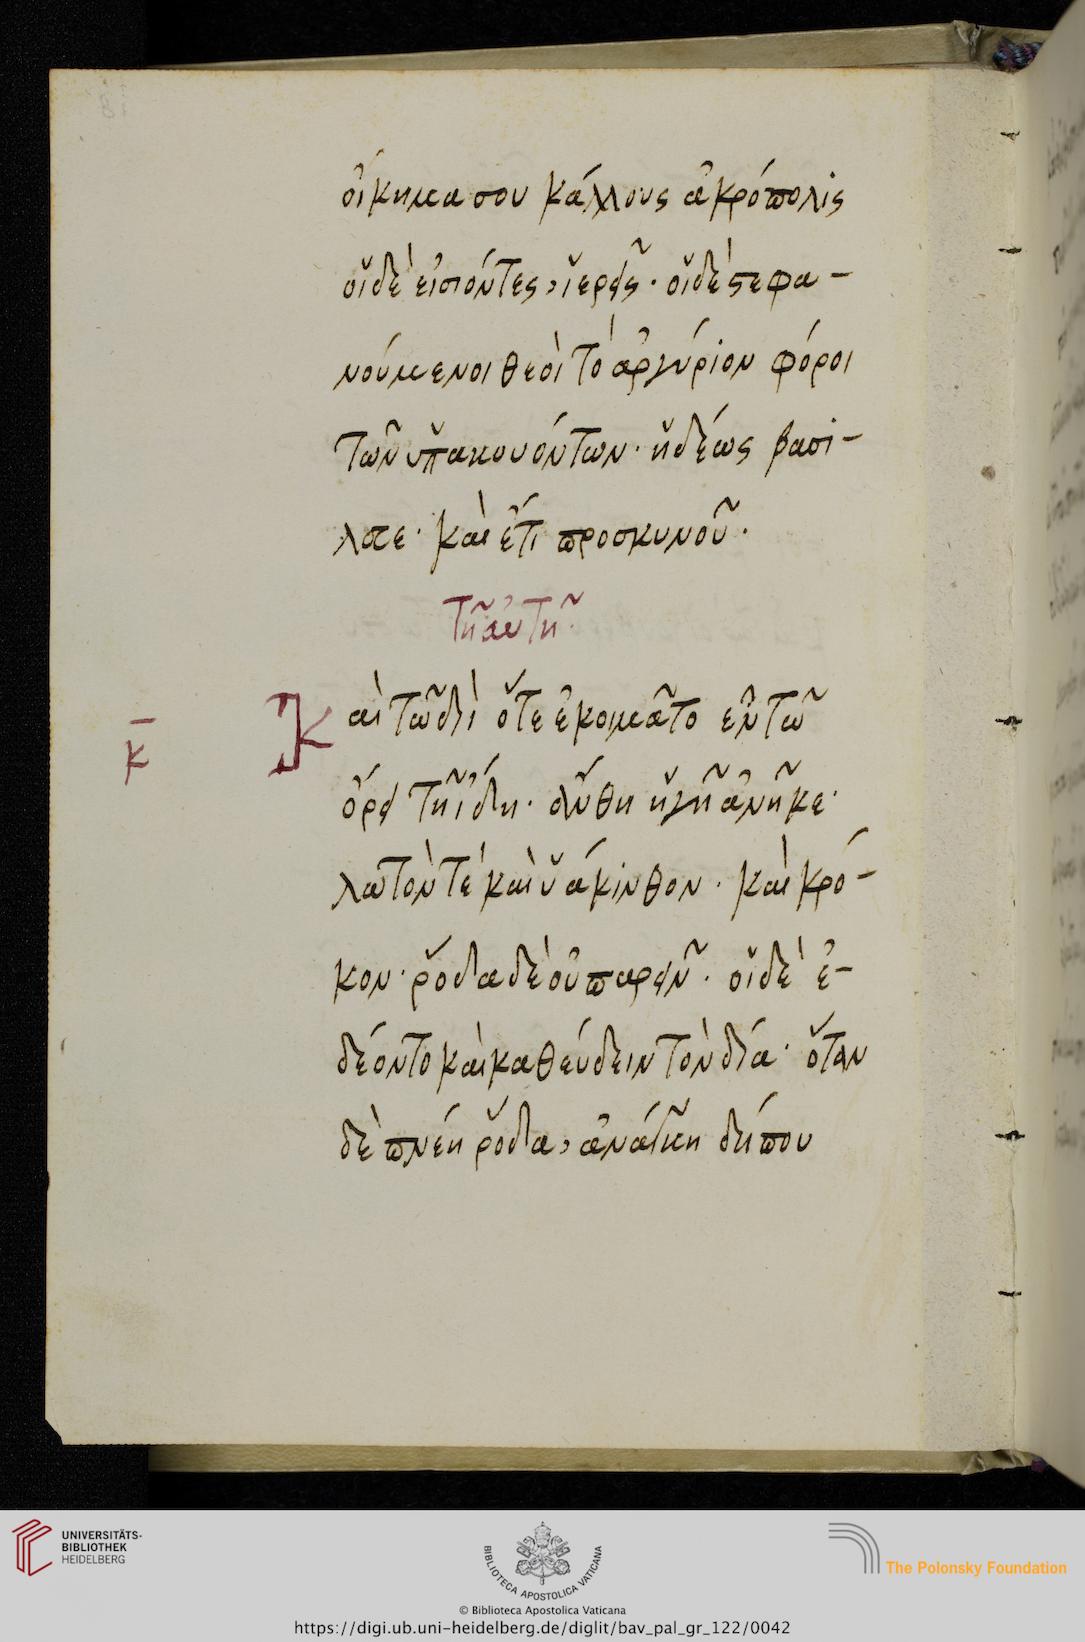 οἴκημα σου κάλλους ἀκρόπολις
οἵ δὲ εἰσιόντες, ἱερεῖς· οἵ δὲ στεφα-
νούμενοι θεοὶ τὸ ἀργύριον φόροι
τῶν ὑπακουόντων· ἡδέως βασί-
λευε· καὶ ἔτι προσκυνοῦ.
τῆ αὐτῆ.
Καὶ τῶ διῒ ὅτε ἐκοιμᾶτο ἐν τῶ
κ
ὄρει τῆ ἴδη· ἄνθη ἡ γῆ ἀνῆκε·
λωτὸν τὲ καὶ ὑάκινθον· καὶ κρό-
κον· ῥόδα δὲ οὐ παρεῖν. οἵ δὲ ἐ-
δέοντο καὶ καθεύδειν τὸν δία· ὅταν
δὲ πνέη ῥόδα, ἀνάγκη δήπου
UNIVERSITÄTS-
BIBLIOTHEK
HEIDELBERG
BIBLIOTECA APOSTOLICA VATICANA
The Polonsky Foundation
© Biblioteca Apostolica Vaticana
https://digi.ub.uni-heidelberg.de/diglit/bav_pal_gr_122/0042